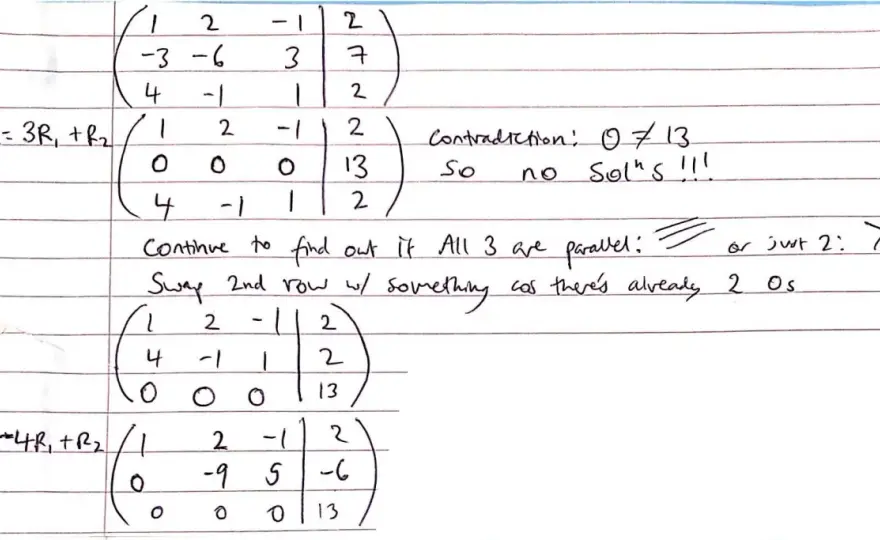 1 2 -1 | 2
-3 -6 3 | 7
4 -1 1 | 2
= 3R₁ + R₂
1 2 -1 | 2 Contradiction: 0 ≠ 13
0 0 0 | 13 So no solⁿs !!!
4 -1 1 | 2
Continue to find out if All 3 are parallel: or just 2:
Swap 2nd row w/ something cos there's already 2 0s
1 2 -1 | 2
4 -1 1 | 2
0 0 0 | 13
-4R₁ + R₂
1 2 -1 | 2
0 -9 5 | -6
0 0 0 | 13